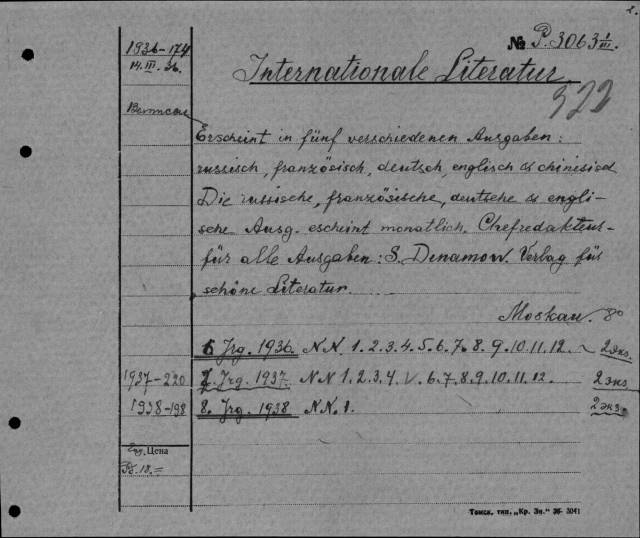 2.
1936-174
14.III.36.
№ P. 3063 1/III.
Internationale Literatur
522
Erscheint in fünf verschiedenen Ausgaben:
russisch, französisch, deutsch, englisch & chinesisch
Die russische, französische, deutsche & engli-
sche Ausg. escheint monatlich. Chefredakteur-
für alle Ausgaben: S. Denamow. Verlag für
schöne Literatur.
Moskau. 8°
6 Jrg. 1936. N.N. 1.2.3.4.5.6.7.8.9.10.11.12. 2 экз.
1937-220 7. Jrg. 1937. N N 1.2.3.4. 6.7.8.9.10.11.12. 2 экз.
1938-198 8. Jrg. 1938 N.N. 1. 2 экз.
Цена
18.=
Томск. тип. „Кр. Зн." 36- 3041